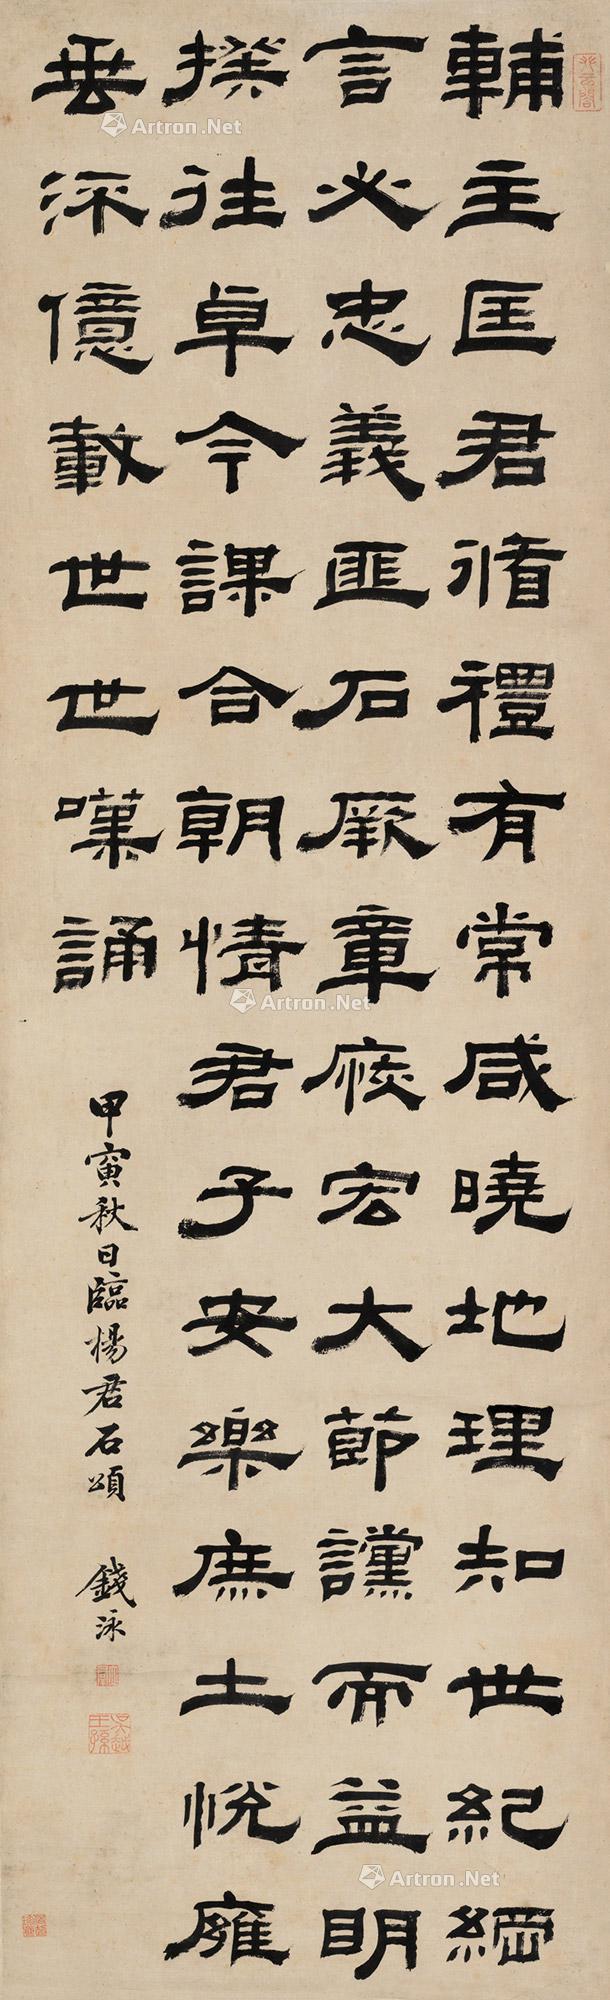 輔主匡君循禮有常咸曉地理知世紀綱
言必忠義匪石厥章恢宏大節讜而益明
揆往卓今謀合朝情君子安樂庶士悅雍
垂流億載世世嘆誦
甲寅秋日臨楊君石頌 錢泳
吳越王孫
Artron.Net
Artron.Net
Artron.Net